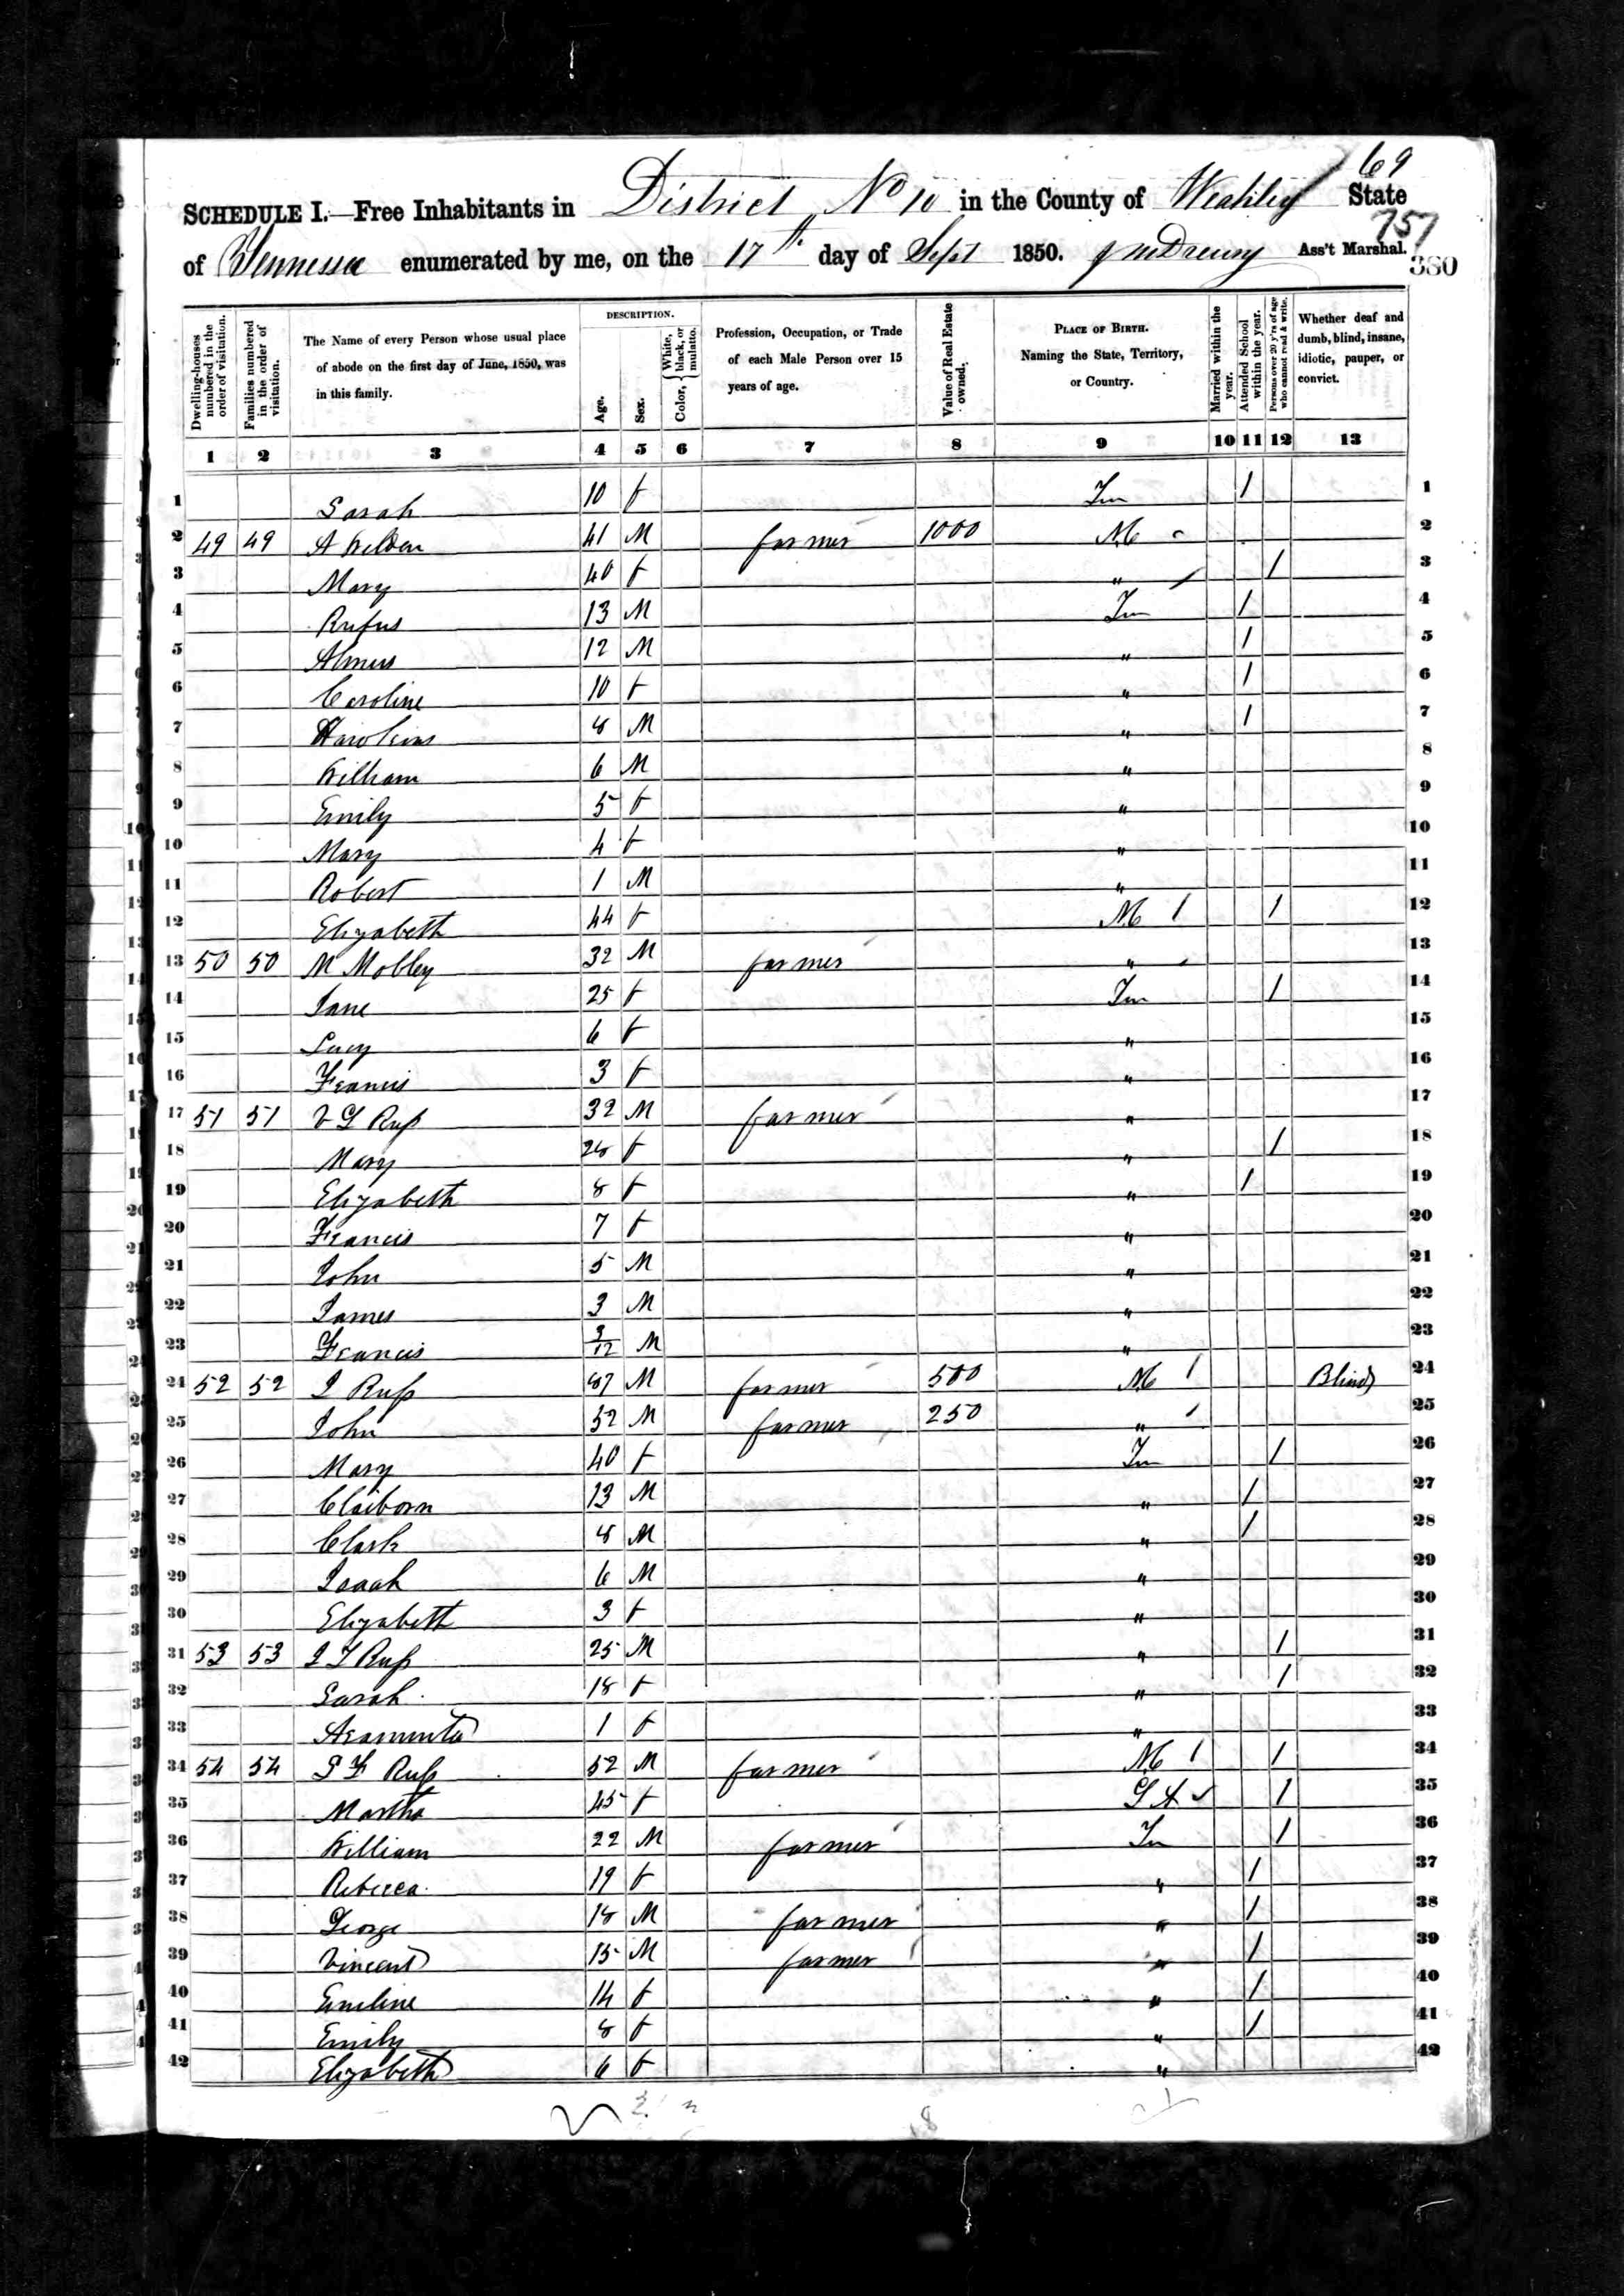 69
SCHEDULE I.—Free Inhabitants in District No 10 in the County of Weakley State
757
of Tennessee enumerated by me, on the 17th day of Sept 1850. Ass't Marshal.
380
DESCRIPTION.
Dwelling-houses numbered in the order of visitation.
Families numbered in the order of visitation.
The Name of every Person whose usual place of abode on the first day of June, 1850, was in this family.
Age.
Sex.
Color, White, black, or mulatto.
Profession, Occupation, or Trade of each Male Person over 15 years of age.
Value of Real Estate owned.
PLACE OF BIRTH. Naming the State, Territory, or Country.
Married within the year.
Attended School within the year.
Persons over 20 y'rs of age who cannot read & write.
Whether deaf and dumb, blind, insane, idiotic, pauper, or convict.
1 2 3 4 5 6 7 8 9 10 11 12 13
1 Sarah 10 f Tn 1 1
2 49 49 A 41 M farmer 1000 NC 2
3 Mary 40 f " 1 3
4 Rufus 13 M Tn 1 4
5 12 M " 1 5
6 Caroline 10 f " 1 6
7 8 M " 1 7
8 William 6 M " 8
9 Emily 5 f " 9
10 Mary 4 f " 10
11 Robert 1 M " 11
12 Elizabeth 44 f NC 1 12
13 50 50 M Mobley 32 M farmer " 13
14 Jane 25 f Tn 1 14
15 Lucy 6 f " 15
16 Francis 3 f " 16
17 51 51 V S Russ 32 M farmer " 17
18 Mary 28 f " 1 18
19 Elizabeth 8 f " 1 19
20 Francis 7 f " 20
21 John 5 M " 21
22 James 3 M " 22
23 Francis M " 23
24 52 52 J Russ 87 M farmer 500 NC Blind 24
25 John 52 M farmer 250 " 25
26 Mary 40 f Tn 1 26
27 Claiborn 13 M " 1 27
28 Clark 8 M " 1 28
29 Isaah 6 M " 29
30 Elizabeth 3 f " 30
31 53 53 Russ 25 M " 1 31
32 Sarah 18 f " 1 32
33 Araminta 1 f " 33
34 54 54 Russ 52 M farmer NC 1 34
35 Martha 45 f 1 35
36 William 22 M farmer Tn 1 36
37 Rebecca 19 f " 1 37
38 George 18 M farmer " 1 38
39 Vincent 15 M farmer " 1 39
40 Emeline 14 f " 1 40
41 Emily 8 f " 1 41
42 Elizabeth 6 f " 42